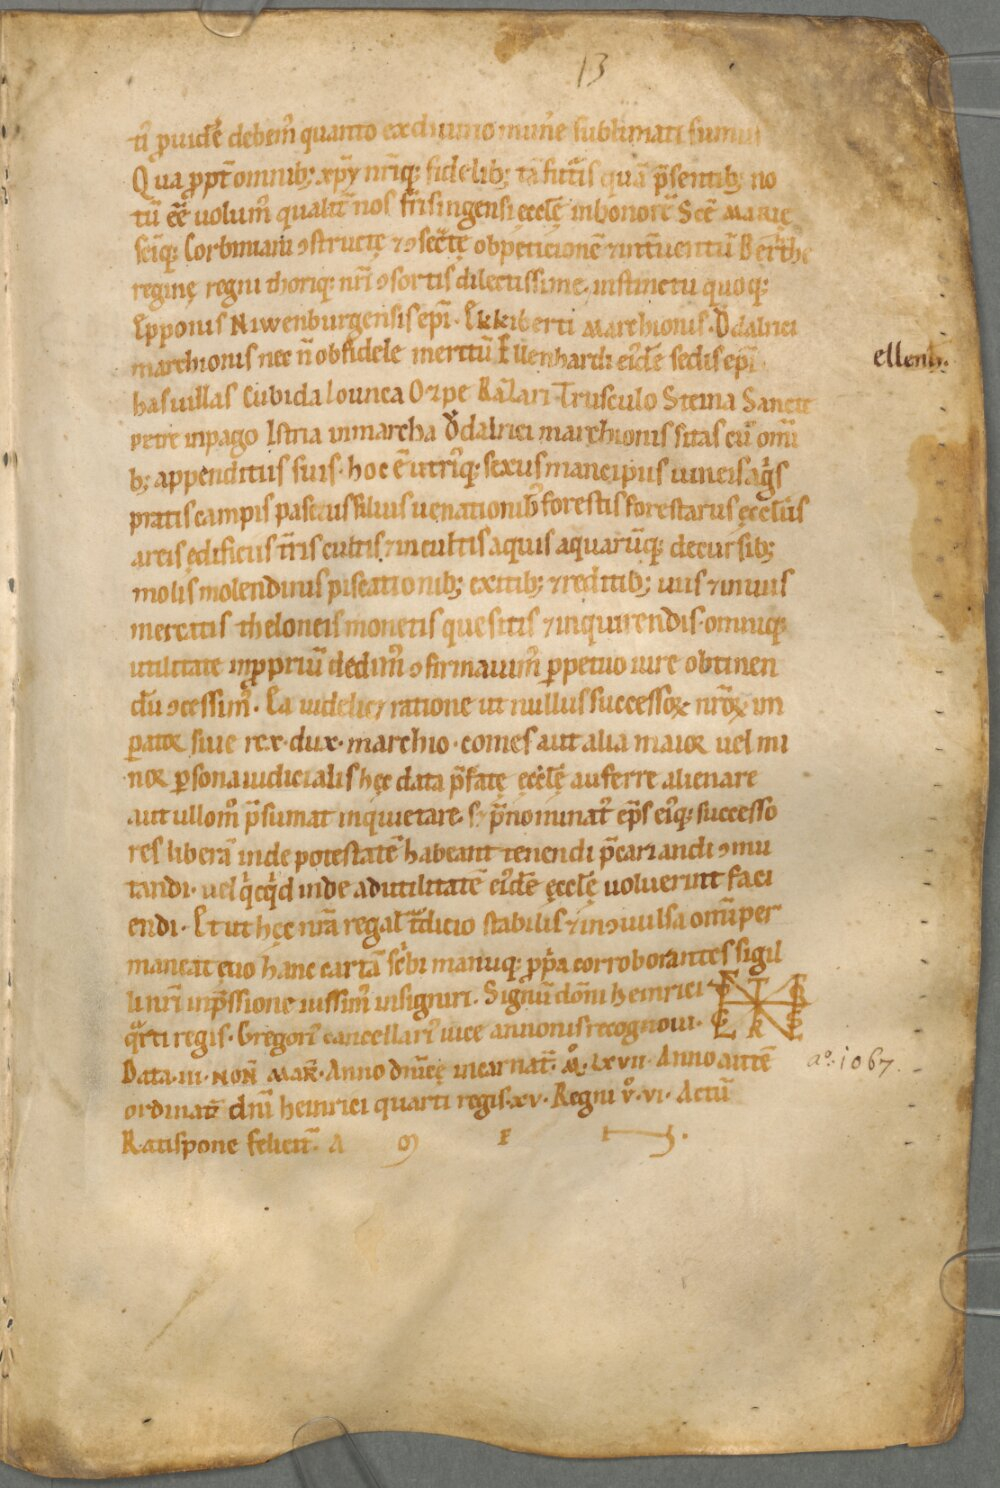 13
ti ꝓuidē debem᷒ quanto ex diuino mun̄e sublimati sumus
Qua ꝓpt̄ omnib; xp̄i nr̄iq; fidelib; tā futuris quā p̄sentib; no
tū eē uolum᷒ qualit̄ nos frisingensi ęccl̄ę in honorē Scē Marię
sc̄iq; Corbiniani ꝯstructę ⁊ ꝯsecr̄tę ob peticionē ⁊ int̄uentū Berthe
reginę regni thoriq; nr̄i ꝯsortis dilectissime, instinctu quoq;
Epponis Niwenburgensis ep̄i · Ekkiberti Marchionis · Ǒdalrici
marchionis nec n̄ ob fidele meritū Ellenhardi eiusdē sedis ep̄i ·
ellenh.
has uillas Cubida Lounca Ozpe Razari Trusculo Steina Sancte
petre in pago Istria in marcha Ǒdalrici marchionis sitas cū omi
b; appenditiis suis · hoc ē utriq; sexus mancipiis uineis agris
pratis campis pascuis siluis uenationib᷒ forestis forestariis ęccl̄iis
areis ędificiis t̄ris cultis ⁊ incultis aquis aquarūq; decursib;
molis molendinis piscationib; exitib; ⁊ reditib; uiis ⁊ inuiis
mercatis theloneis monetis quesitis ⁊ inquirendis · omniq;
utilitate in ꝓpriū dedim᷒ ꝯfirmauim᷒ ꝑpetuo iure obtinen
dū ꝯcessim᷒ · Ea uidelicet ratione ut nullus successoꝝ nr̄oꝝ im
ꝑator siue rex · dux · marchio · comes aut alia maior uel mi
nor ꝑsona iudicialis hęc data p̄fatę ęccl̄ę auferre alienare
aut ullom̊ p̄sumat inquietare · s; p̄nominat᷒ ep̄s ei᷒q; successo
res liberā inde potestatē habeant tenendi p̄cariandi ꝯmu
tandi · uel qͥcqͥd inde ad utilitatē ei᷒dē ęccl̄ę uoluerint faci
endi · Et ut hęc nr̄a regal̄ t̄dicio stabilis ⁊ inꝯuulsa om̄i per
maneat euo hanc cartā sc̄bi manuq; ꝓpͥa corroborantes sigil
li nr̄i inp̄ssione iussim᷒ insigniri · Signū dom̄i heinrici
qͣrti regis · Gregori᷒ cancellari᷒ uice annonis recognoui ·
Data · iii · Non̄ Mar̄ · Anno dn̄icę incarnat̄ · M̊ · lxvii · Anno autē
a.º 1067.
ordinat̄ dn̄i heinrici quarti regis · xv · Regni v̊ · vi · Actū
Ratispone felicit̄ · A M E N ·